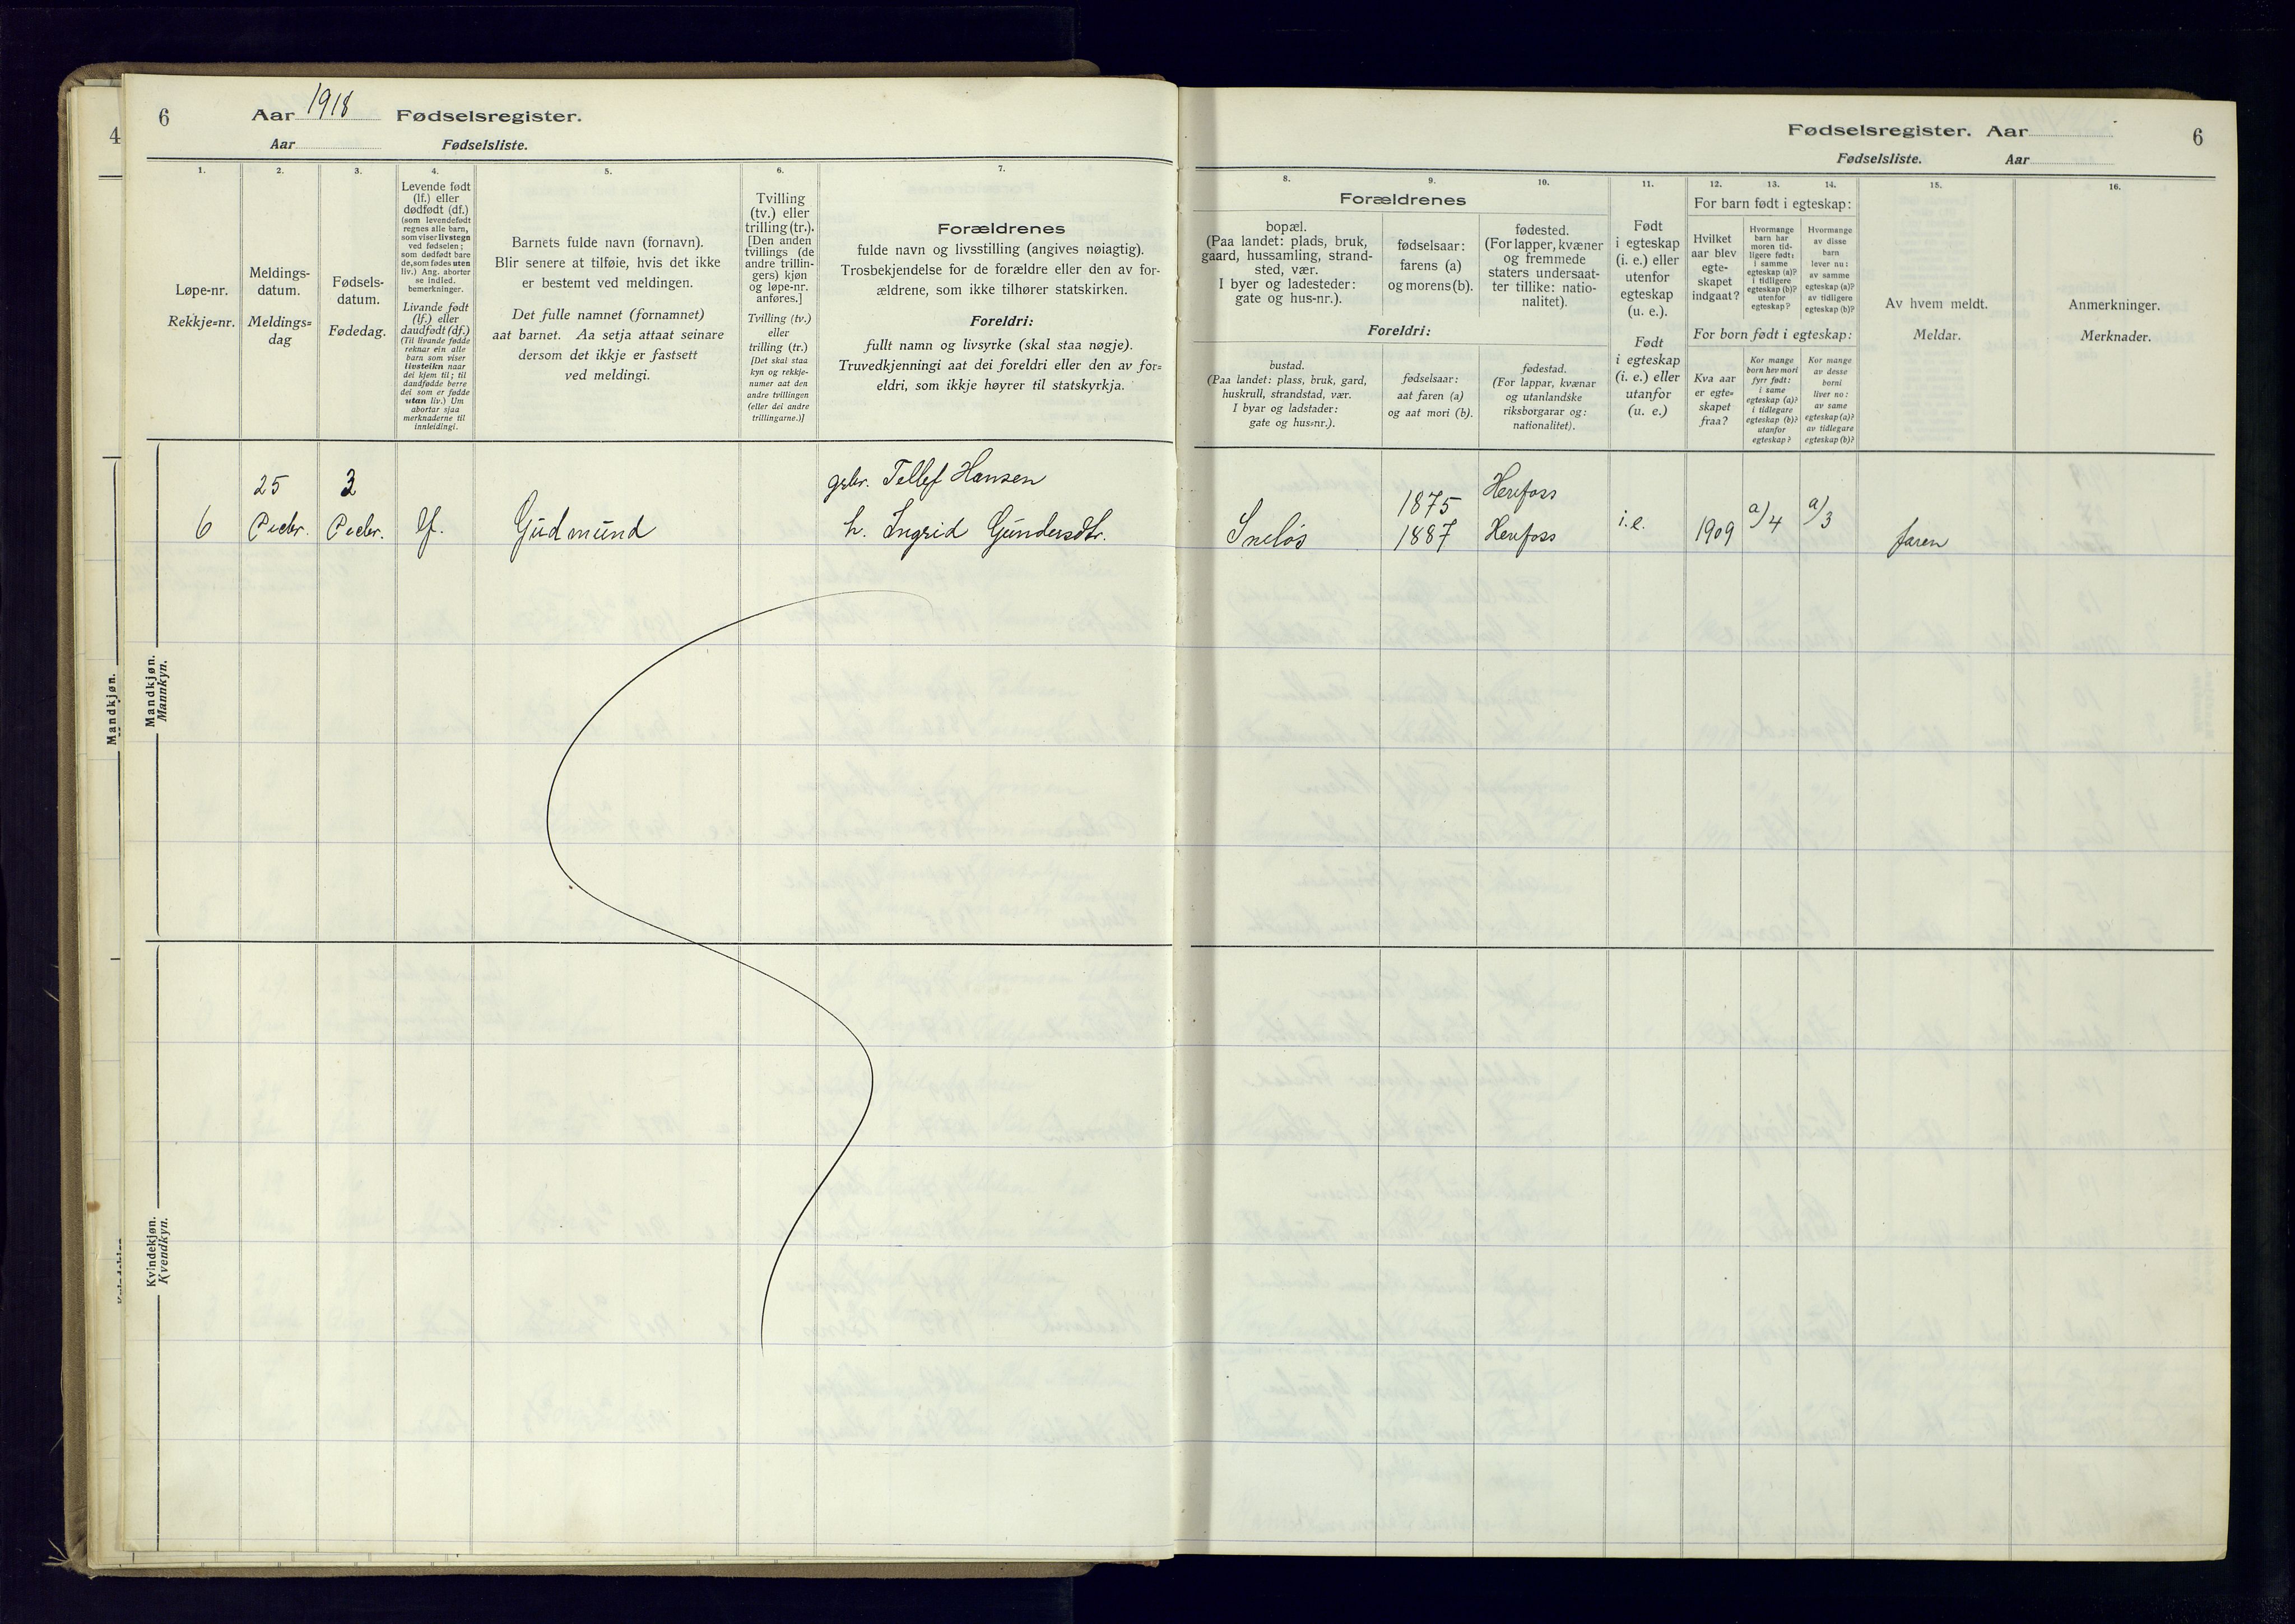 6
Aar 1918 Fødselsregister.
Aar Fødselsliste.
1.
Løpe-nr.
Rekkje=nr.
2.
Meldings-
datum.
Meldings=
dag
3.
Fødsels-
datum.
Fødedag.
4.
Levende født
(lf.) eller
dødfødt (df.)
(som levendefødt
regnes alle barn,
som viser livstegn
ved fødselen;
som dødfødt bare
de, som fødes uten
liv.) Ang. aborter
se indled.
bemerkninger.
Livande født
(lf.) eller
daudfødt (df.)
(Til livande fødde
reknar ein alle
barn som viser
livsteikn naar
dei kjem til; til
daudfødde berre
dei som er fødde
utan liv.) Um
abortar sjaa
merknaderne til
innleidingi.
5.
Barnets fulde navn (fornavn).
Blir senere at tilføie, hvis det ikke
er bestemt ved meldingen.
Det fulle namnet (fornamnet)
aat barnet. Aa setja attaat seinare
dersom det ikkje er fastsett
ved meldingi.
6.
Tvilling
(tv.) eller
trilling (tr.).
[Den anden
tvillings (de
andre trillin-
gers) kjøn
og løpe-nr.
anføres.]
Tvilling (tv.)
eller
trilling (tr.)
[Det skal staa
kyn og rekkje-
numer aat den
andre tvillingen
(eller dei andre
trillingarne.)]
7.
Forældrenes
fulde navn og livsstilling (angives nøiagtig).
Trosbekjendelse for de forældre eller den av for-
ældrene, som ikke tilhører statskirken.
Foreldri:
fullt namn og livsyrke (skal staa nøgje).
Truvedkjenningi aat dei foreldri eller den av for=
eldri, som ikkje høyrer til statskyrkja.
Fødselsregister. Aar
6
Fødselsliste. Aar
8.
9.
10.
Forældrenes
bopæl.
(Paa landet: plads, bruk,
gaard, hussamling, strand-
sted, vær.
I byer og ladesteder:
gate og hus-nr.).
fødselsaar:
farens (a)
og morens (b).
fødested.
(For lapper, kvæner
og fremmede
staters undersaat-
ter tillike: natio-
nalitet).
Foreldri:
bustad.
(Paa landet: plass, bruk, gard,
huskrull, strandstad, vær.
I byar og ladstader:
gate og hus=nr.).
fødselsaar:
aat faren (a)
og aat mori (b).
fødestad.
(For lappar, kvænar
og utanlandske
riksborgarar og:
nationalitet).
11.
Født
i egteskap
(i. e.) eller
utenfor
egteskap
(u. e.).
Født
i egteskap
(i. e.) eller
utanfor
(u. e.)
12.
13.
14.
For barn født i egteskap:
Hvilket
aar blev
egte-
skapet
indgaat?
Hvormange
barn har
moren tid-
ligere født:
i samme
egteskap (a)?
i tidligere
egteskap (b)?
utenfor
egteskap?
Hvormange
av disse
barn
lever nu:
av samme
egteskap (a)?
av tidligere
egteskap (b)?
For born født i egteskap:
Kva aar
er egte=
skapet
fraa?
Kor mange
born hev mori
fyrr født:
i same
egteskap (a)?
i tidlegare
egteskap (b)?
utanfor
egteskap?
Kor mange
av desse
borni
liver no:
av same
egteskap (a)?
av tidlegare
egteskap (b)?
15.
Av hvem meldt.
Meldar.
16.
Anmerkninger.
Merknader.
25 3 gbr. Tellef Hansen 1875 Herefoss
6 Decbr. Decbr. lf. Gudmund h. Ingrid Gundersdtr. Sneløs 1887 Herefoss i.e. 1909 a/4 a/3 faren
Mandkjøn.
Mannkyn.
Kvindekjøn.
Kvendkyn.
4
Mandkjøn.